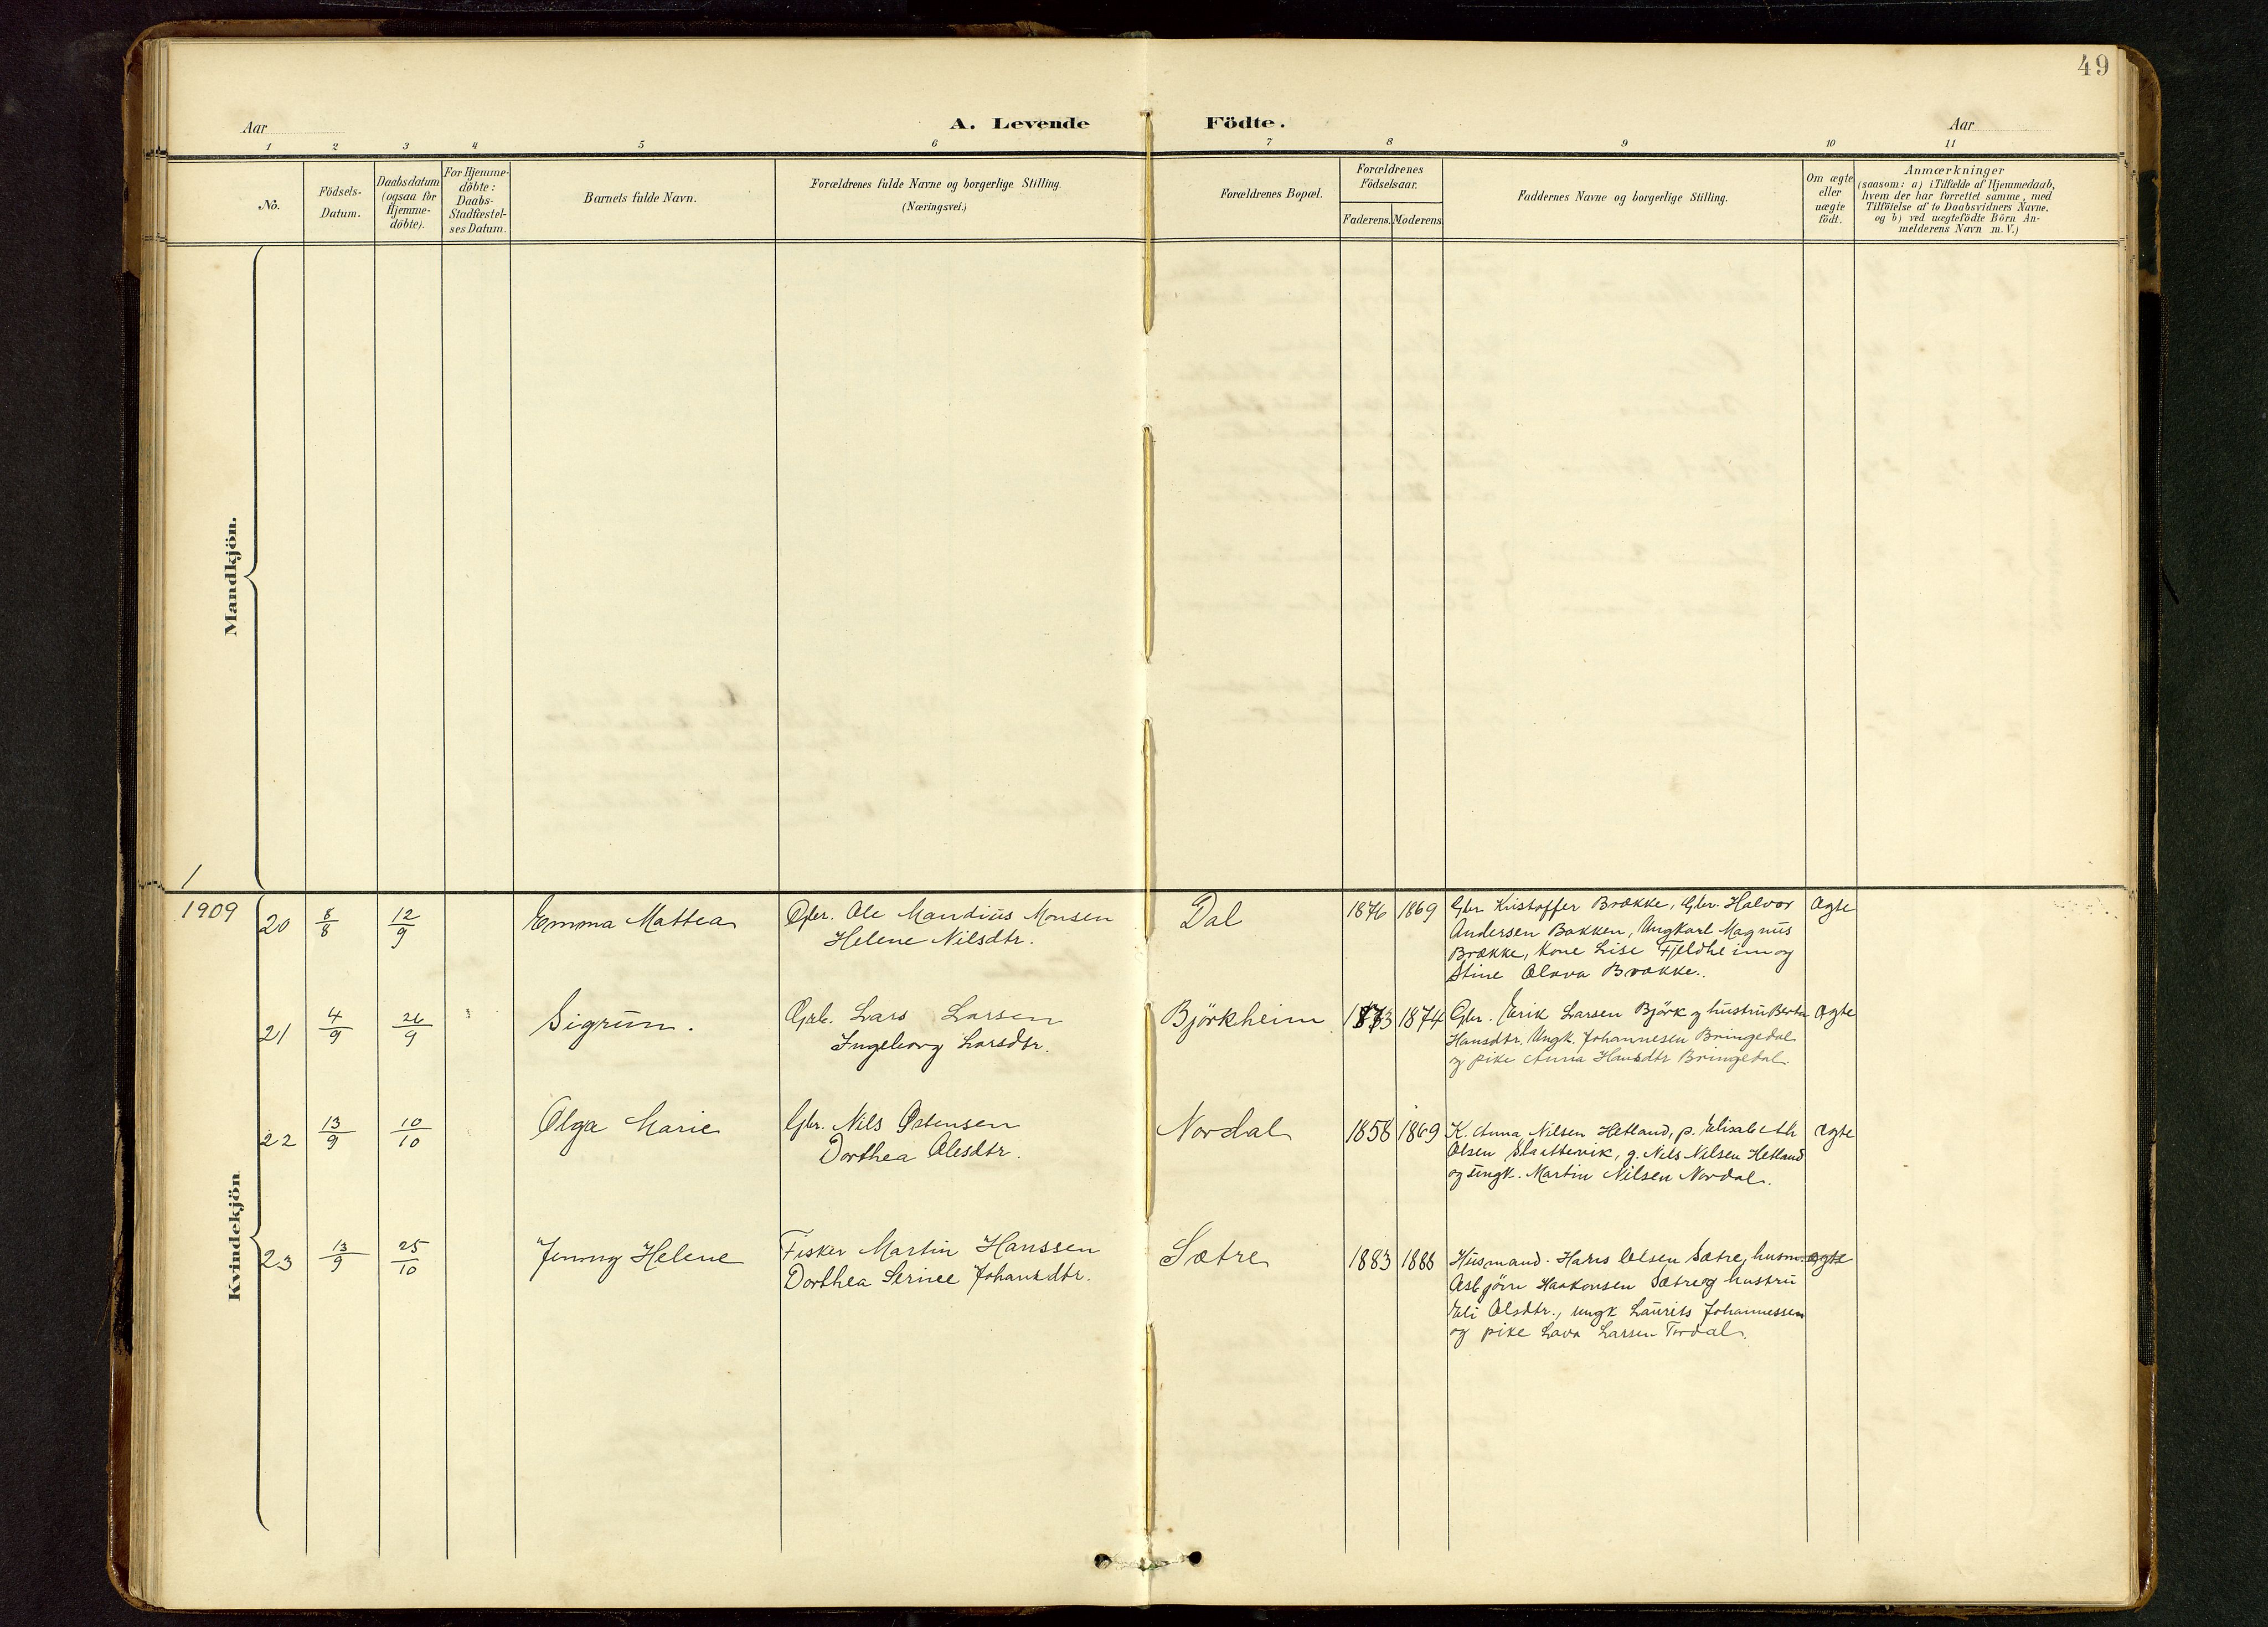 49
Aar
A. Levende Födte.
Aar
1 2 3 4 5 6 7 8 9 10 11
No.
Födsels-
Datum.
Daabsdatum
(ogsaa for
Hjemme-
döbte).
For Hjemme-
döbte:
Daabs-
Stadfæstel-
ses Datum.
Barnets fulde Navn.
Forældrenes fulde Navne og borgerlige Stilling.
(Næringsvei.)
Forældrenes Bopæl.
Forældrenes
Födselsaar.
Faderens. Moderens.
Faddernes Navne og borgerlige Stilling.
Om ægte
eller
uægte
födt.
Anmærkninger
(saasom: a) i Tilfælde af Hjemmedaab,
hvem der har forrettet samme, med
Tilföielse af to Daabsvidners Navne.
og b) ved uægtefödte Börn An-
melderens Navn m. V.)
Mandkjön.
Kvindekjön
1909
20 8/8 12/9 Emma Mattea
Gbr. Ole Mandius Monsen
Helene Nilsdtr.
Dal 1876 1869
Gbr Kristoffer Brække, Gbr. Halvor
Andersen Bakken, Ungkarl Magnus
Brække, Kone Lise Fjeldheim og
Stine Olava Brække.
Ægte
21 4/9 26/9 Sigrun.
Gbr. Lars Larsen
Ingeborg Larsdtr.
Björkheim 1873 1874
Gbr. Erik Larsen Björk og hustru Berta
Hansdtr. Ungk. Johannesen Bringedal
og pike Anna Hansdtr Bringedal.
Ægte
22 13/9 10/10 Olga Marie
Gbr. Nils Østensen
Dorthea Olesdtr.
Nordal 1858 1869
K. Anna Nilsen Hetland, p. Elisabeth
Olsen Slaattevik, g. Nils Nilsen Hetland
og ungk. Martin Nilsen Nordal.
Ægte
23 13/9 25/10 Jenny Helene
Fisker Martin Hanssen
Dorthea Serine Johansdtr.
Sætre 1883 1888
Husmand. Hans Olsen Sætre, husm.
Asbjörn Haakonsen Sætre og hustru
Eli Olsdtr., ungk Laurits Johannessen
og pike Lava Larsen Tordal.
Ægte